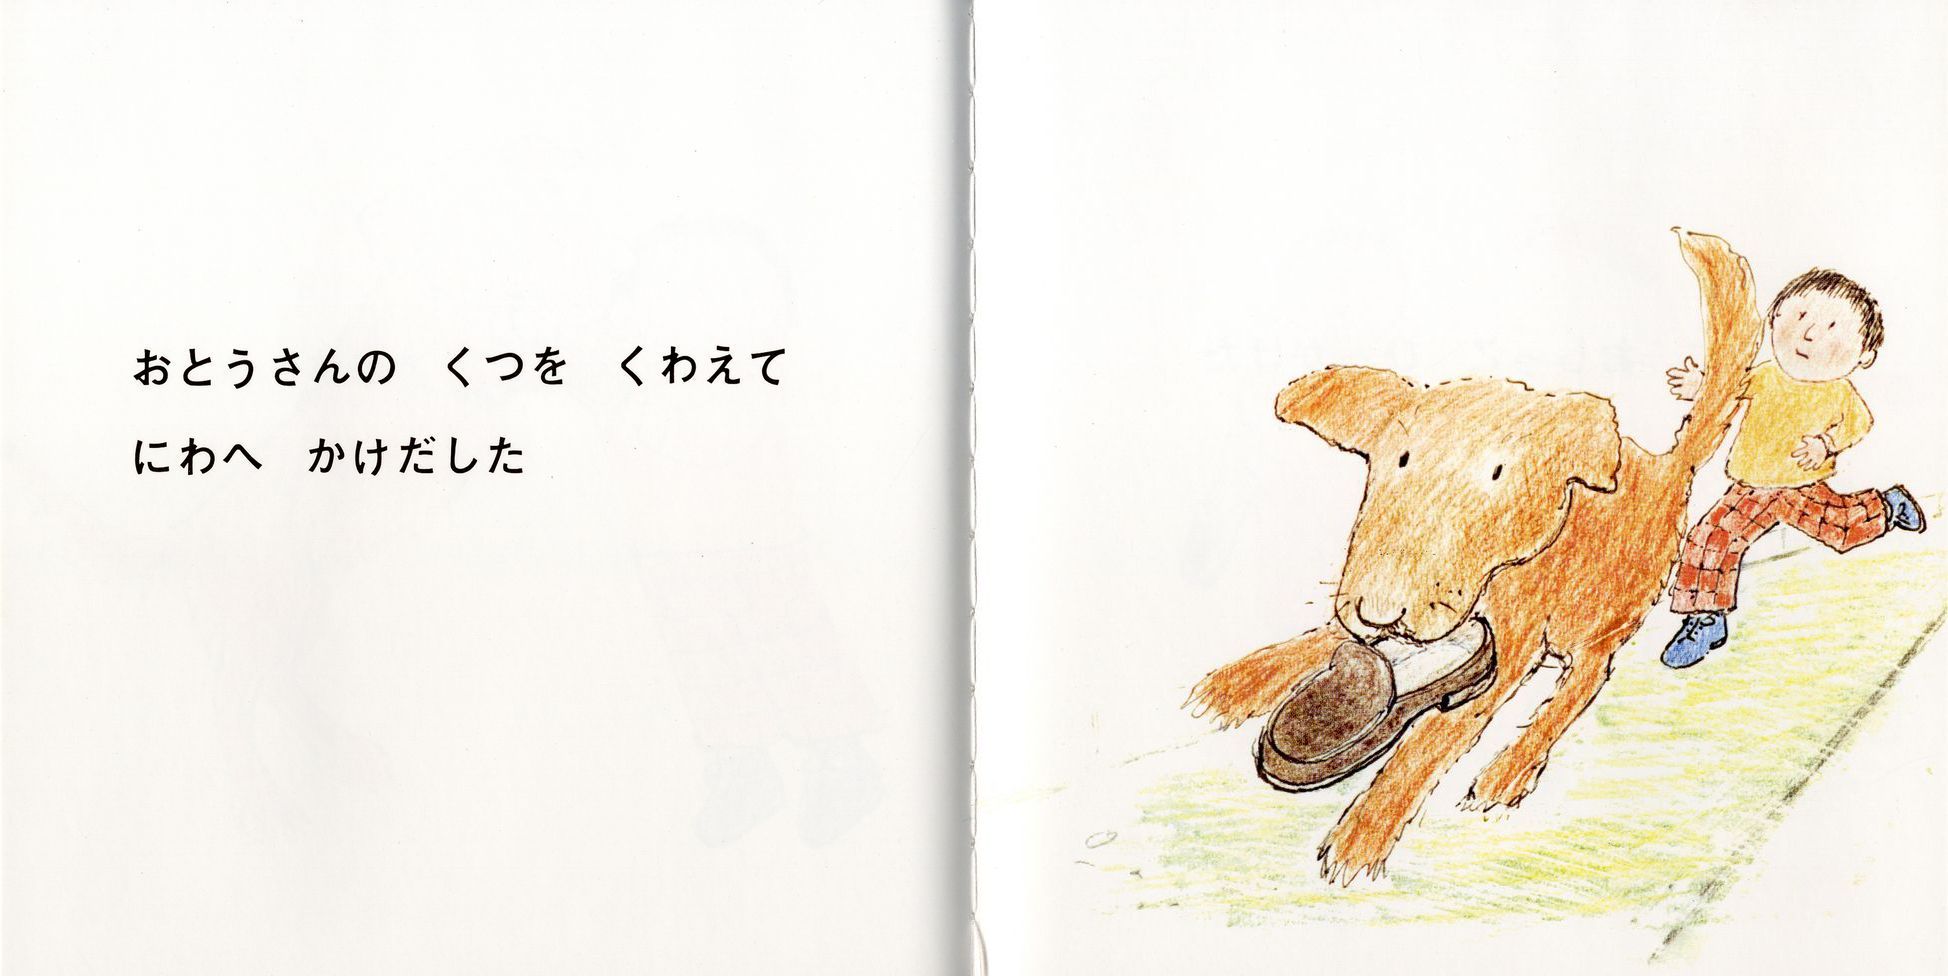 おとうさんの　くつを　くわえて
にわへ　かけだした